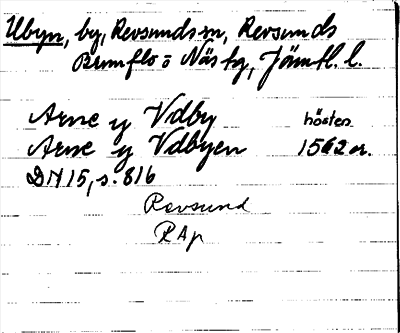 Ubyn, by, Revsunds sn, Revsunds
Brunflo o Näs tg, Jämtl. l.
Arne y Vdby hösten
Arne y Vdbyen 1562 or.
DN 15, s. 816
Revsund
RAp